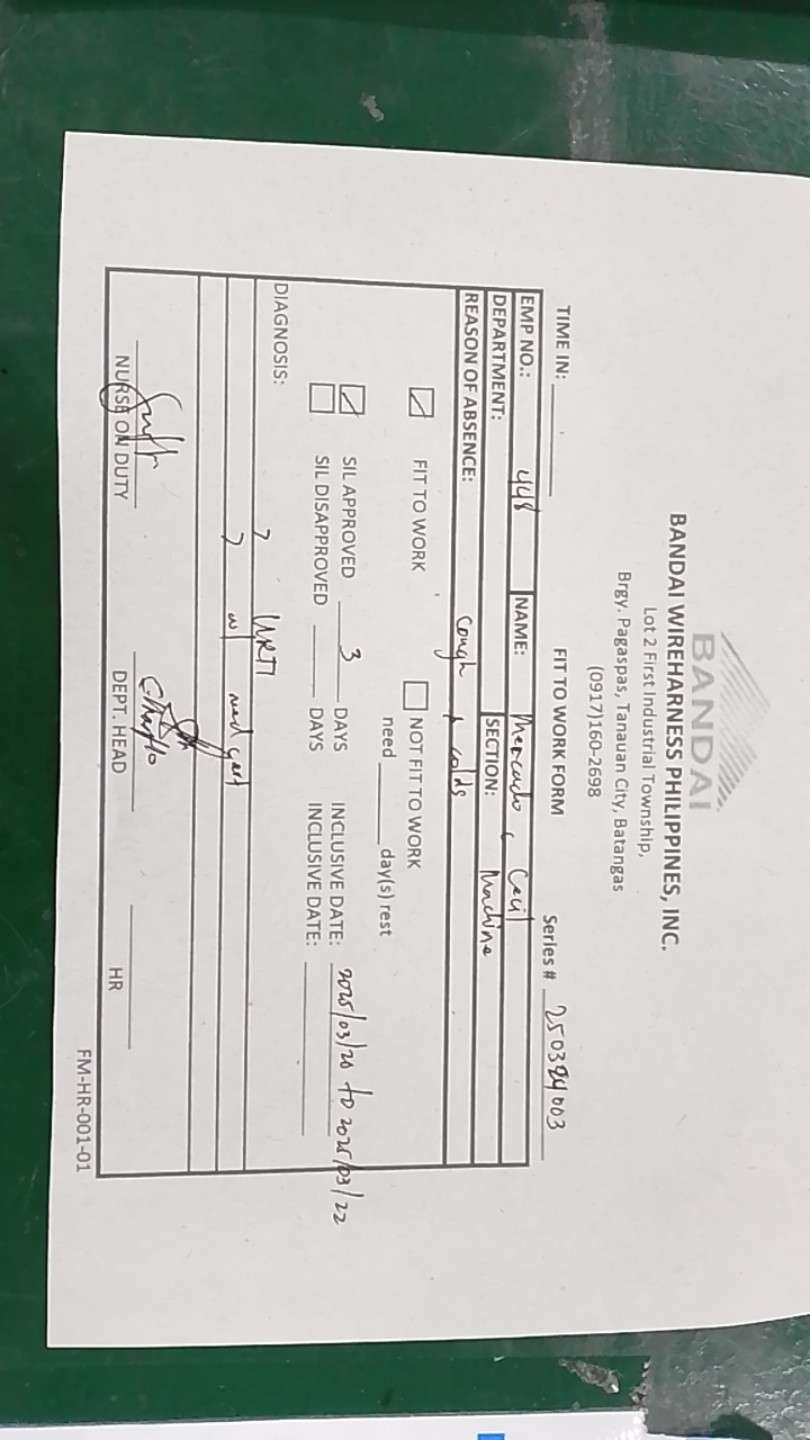 BANDAI
BANDAI WIREHARNESS PHILIPPINES, INC.
Lot 2 First Industrial Township,
Brgy. Pagaspas, Tanauan City, Batangas
(0917)160-2698
TIME IN: FIT TO WORK FORM Series # 250324003
EMP NO.: 448 NAME: Mercado, Cecil
DEPARTMENT: SECTION: Machine
REASON OF ABSENCE: cough + colds
FIT TO WORK NOT FIT TO WORK
need day(s) rest
SIL APPROVED 3 DAYS INCLUSIVE DATE: 2025/03/20 to 2025/03/22
SIL DISAPPROVED DAYS INCLUSIVE DATE:
DIAGNOSIS:
URTI
w/ med cert
NURSE ON DUTY DEPT. HEAD HR
FM-HR-001-01